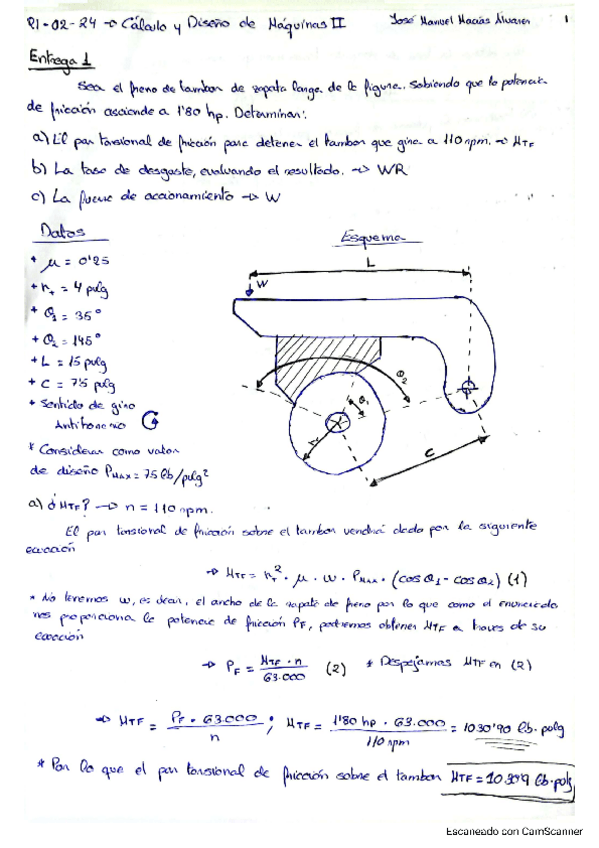 21-02-24 → Cálculo y Diseño de Máquinas II José Manuel Macías Álvarez 1
Entrega 1
Sea el freno de tambor de zapata larga de la figura. Sabiendo que la potencia
de fricción asciende a 1'80 hp. Determinar:
a) El par torsional de fricción para detener el tambor que gira a 110 rpm. → MTF
b) La tasa de desgaste, evaluando el resultado. → WR
c) La fuerza de accionamiento → W
Datos
Esquema
* μ = 0'25
* r = 4 pulg
* θ1 = 35°
* θ2 = 145°
* L = 15 pulg
* C = 7'5 pulg
* Sentido de giro
Antihorario
* Considerar como valor
de diseño PMAX = 75 lb/pulg²
L
W
θ2
θ1
r
C
a) ¿MTF? → n = 110 rpm.
El par torsional de fricción sobre el tambor vendrá dado por la siguiente
ecuación
→ MTF = r² · μ · w · PMAX · (cos θ1 - cos θ2) (1)
* No tenemos w, es decir, el ancho de la zapata de freno por lo que como el enunciado
nos proporciona la potencia de fricción PF, podremos obtener MTF a través de su
ecuación
→ PF = MTF · n / 63.000 (2) * Despejamos MTF en (2)
→ MTF = PF · 63.000 / n ; MTF = 1'80 hp · 63.000 / 110 rpm = 1030'90 lb·pulg
* Por lo que el par torsional de fricción sobre el tambor MTF =
Escaneado con CamScanner